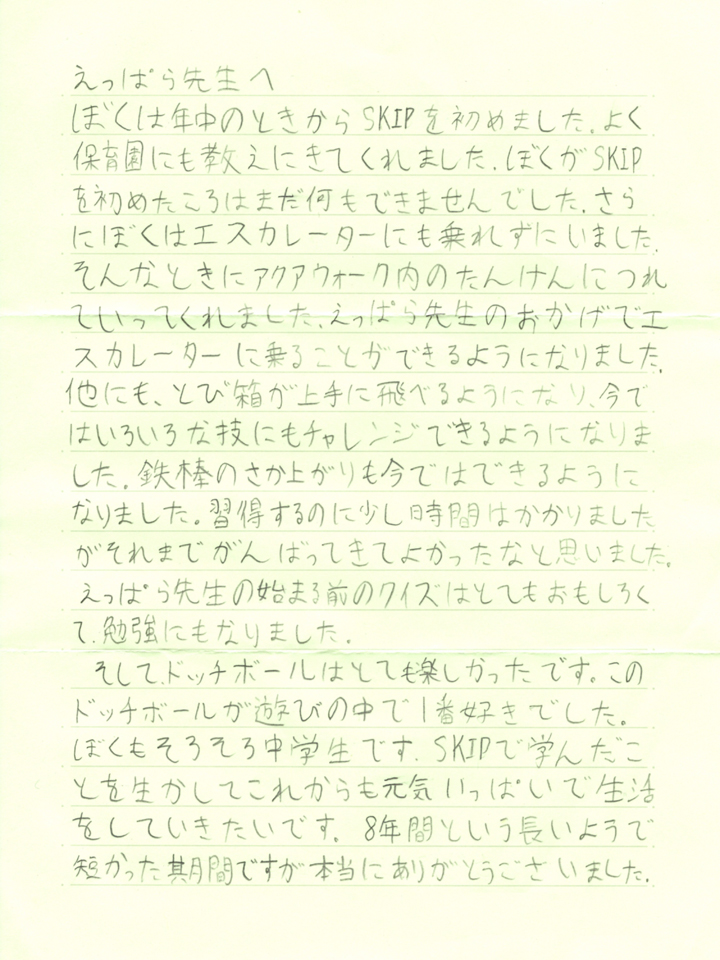 えっぱら先生へ
ぼくは年中のときからSKIPを初めました。よく
保育園にも教えにきてくれました。ぼくがSKIP
を初めたころはまだ何もできませんでした。さら
にぼくはエスカレーターにも乗れずにいました。
そんなときにアクアウォーク内のたんけんにつれ
ていってくれました。えっぱら先生のおかげでエ
スカレーターに乗ることができるようになりました。
他にも、とび箱が上手に飛べるようになり、今で
はいろいろな技にもチャレンジできるようになりま
した。鉄棒のさか上がりも今ではできるように
なりました。習得するのに少し時間はかかりました
がそれまでがんばってきてよかったなと思いました。
えっぱら先生の始まる前のクイズはとてもおもしろく
て、勉強にもなりました。
そして、ドッチボールはとても楽しかったです。この
ドッチボールが遊びの中で1番好きでした。
ぼくもそろそろ中学生です。SKIPで学んだこ
とを生かしてこれからも元気いっぱいで生活
をしていきたいです。8年間という長いようで
短かった期間ですが本当にありがとうございました。